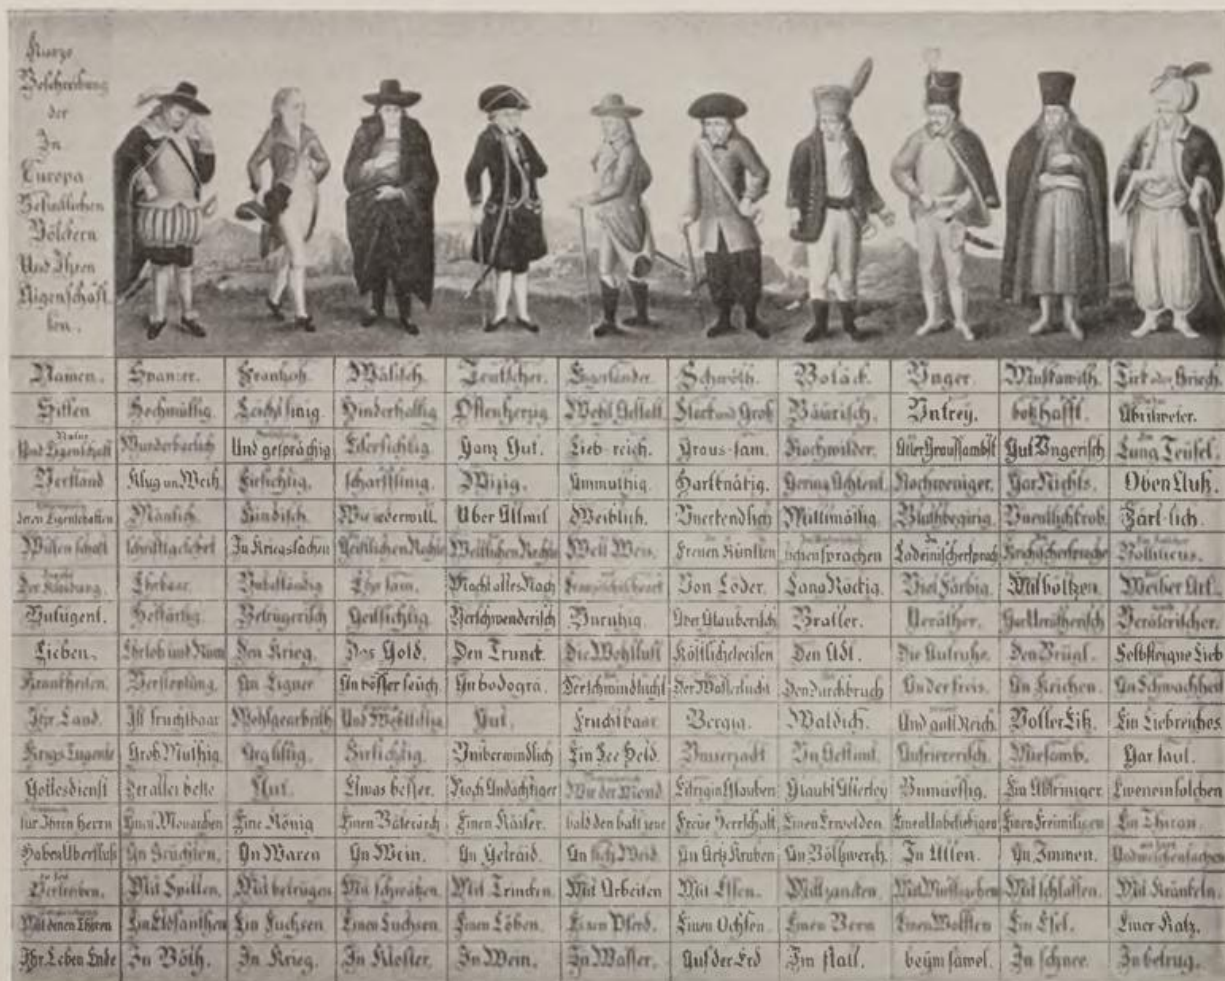 Kurze
Beschreibung
der
In
Europa
Befindlichen
Völckern
Und Ihren
Aigenschaff
ten.
Namen. Spanier. Frantzoß. Wälisch. Teutscher. Engerländer. Schwöth. Boläck. Vnger. Muskawith. Tirk oder Griech.
Sitten Hochmüttig. Leichtsinig. Hinderhaltig Offenherzig Wohl Gestalt. Starck und Groß Bäurisch. Vntrey. boßhafft. Abrilweter.
Natur Und Eigenschaft Wunderbarlich Und gesprächig Eifersichtig. Ganz Gut. Lieb-reich. Graus-sam. Nochwilder. Aller Graussambst Gut Vngerisch Lung Teüfel.
Verstand Klug un Weiß. Firsichtig. scharffsinig. Wizig. Ammuthig. Hartknätig. Gering Achtent. Nochweniger. Gar Nichts. Oben Auß.
deren Eigenschaften Mänlich. Kindisch. Wie iederwill. Über Allmit Weiblich. Vnerkendlich Mittlmäßig. Bluthbegirig. Vnentlichkrob. Zärt-lich.
Wissenschaft schriftgelehrt In Kriegssachen Geistlichen Rechte Weltlichen Rechte Welt Weis. Freuen Künsten sprachen Ladeinischersprach Kriechischersprache Bolliticus.
Der Kleidung. Ehrbaar. Ehrsam. Macht alles Nach Von Löder. Lang Röckig. Viel Färbig. Mit böltzen. Weiber Art.
Vntugent. Hoffärtig. Betrügerisch Geilsichtig. Verschwenderisch Vnruhig. Aber Glauberisch Braller. Veräther. Gar Verätherisch Veräterischer.
Lieben. Ehrlob und Rum Den Krieg. Das Gold. Den Trunck. Die Wohllust Köstlichespeisen Den Adl. Die Aufruhe. Den Brügl. Selbsteigne Lieb
Kranckheiten. Verstopfung. An Eigner An bösser seüch. An bodogra. Der schwindsucht Der Wassersucht Den durchbruch An der freis. An Keichen. An Schwachheit
Ihr Land. Ist fruchtbaar Wohlgearbeith Und Wohllistig Gut. Fruchtbaar. Bergig. Waldich. Und golt Reich. Voller Eiß. Ein Liebreiches
Krigs Tugente Groß Muthig. Arglistig. Firsichtig. Vniberwindlich Ein See Held. Vnverzadt Vn Gestimt. Aufriererisch. Miesamb. Gar faul.
Gottesdienst Der aller beste Gut. Etwas besser. Noch Andächtiger Wie der Mond Eifrig in Glauben Glaubt Allerley Vnmuessig. Ein Abtriniger Eweneinsolchen
für Ihren herrn Einen Monarchen Eine König Einen Bäterärch Einen Käiser. bald den balt jene Freüe Herrschaft Einen Erwelden Einen Unbeliebigen Einen Freimiligen Ein Thiran.
Haben Überfluß An Früchten. An Waren An Wein. An Geträid. An An Ärtz Kruben An Böltzwerch. In Allen. An Immen. Und weichen sachen
Vertreiben. Mit Spillen. Mit betrügen Mit schwätzen. Mit Trincken. Mit Arbeiten Mit Essen. Mit zancken. Mit Miessigehen Mit schlaffen. Mit Kränkeln.
Mit denen Thieren Ein Elofanthen Ein Fuchsen. Einen Luchsen. Einen Löben. Einen Pferd. Einen Ochsen. Einen Bern Einen Wolffen Ein Esel. Einer Katz.
Ihr Leben Ende In Böth. In Krieg. In Kloster. In Wein. In Wasser. Auf der Erd Im stall. beÿm säwel. In schnee. In betrug.